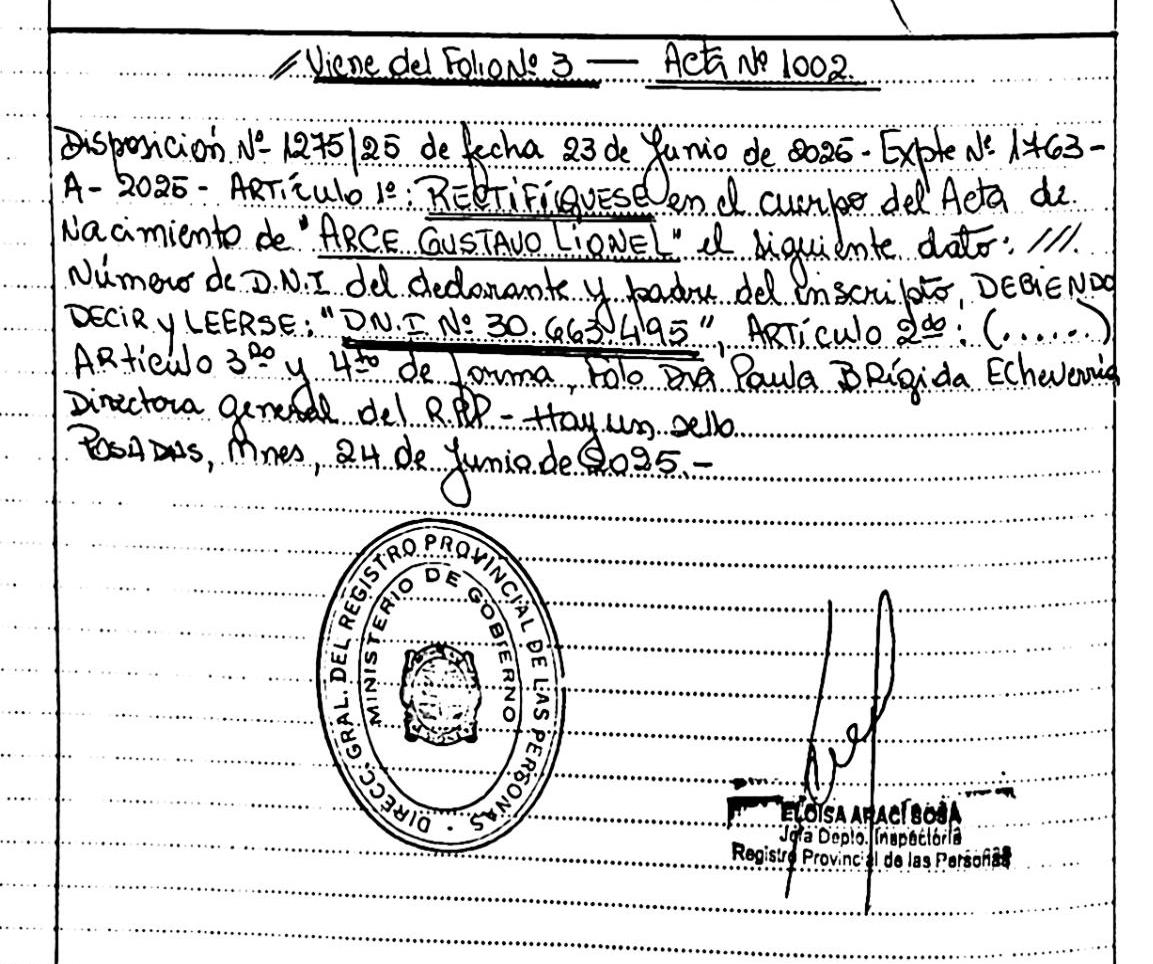 // Viene del Folio Nº 3 — Acta Nº 1002.
Disposición Nº 1275/25 de fecha 23 de Junio de 2025 - Expte Nº 1763-
A - 2025 - ARTÍCULO 1º: RECTIFÍQUESE en el cuerpo del Acta de
Nacimiento de "ARCE GUSTAVO LIONEL" el siguiente dato: ///.
Número de D.N.I del declarante y padre del inscripto, DEBIENDO
DECIR y LEERSE: "D.N.I. Nº 30.663.495", ARTÍCULO 2do: (......)
ARTÍCULO 3ro y 4to de forma, Fdo Dra Paula BRígida Echeverria
Directora general del R.P.P - Hay un sello
POSADAS, Mnes, 24 de Junio de 2025.-
DIRECC. GRAL. DEL REGISTRO PROVINCIAL DE LAS PERSONAS
MINISTERIO DE GOBIERNO
ELOISA ARACÍ SOSA
Jefa Depto. Inspectoría
Registro Provincial de las Personas